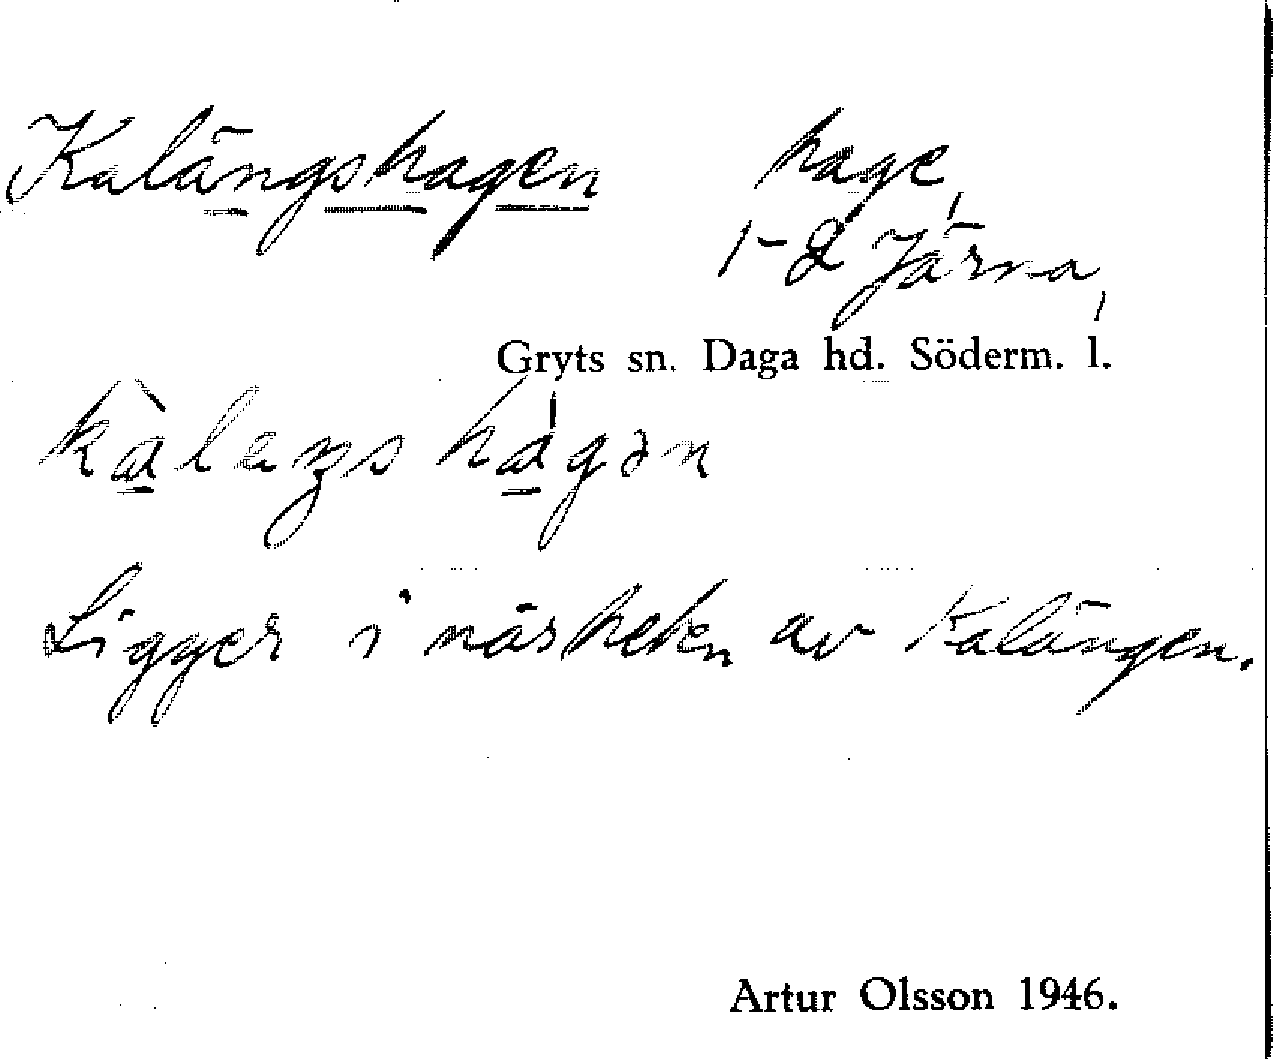 Kalängshagen hage,
1-2 Järna,
Gryts sn. Daga hd. Söderm. l.
kàlæŋs hágən
Ligger i närheten av Kalängen.
Artur Olsson 1946.